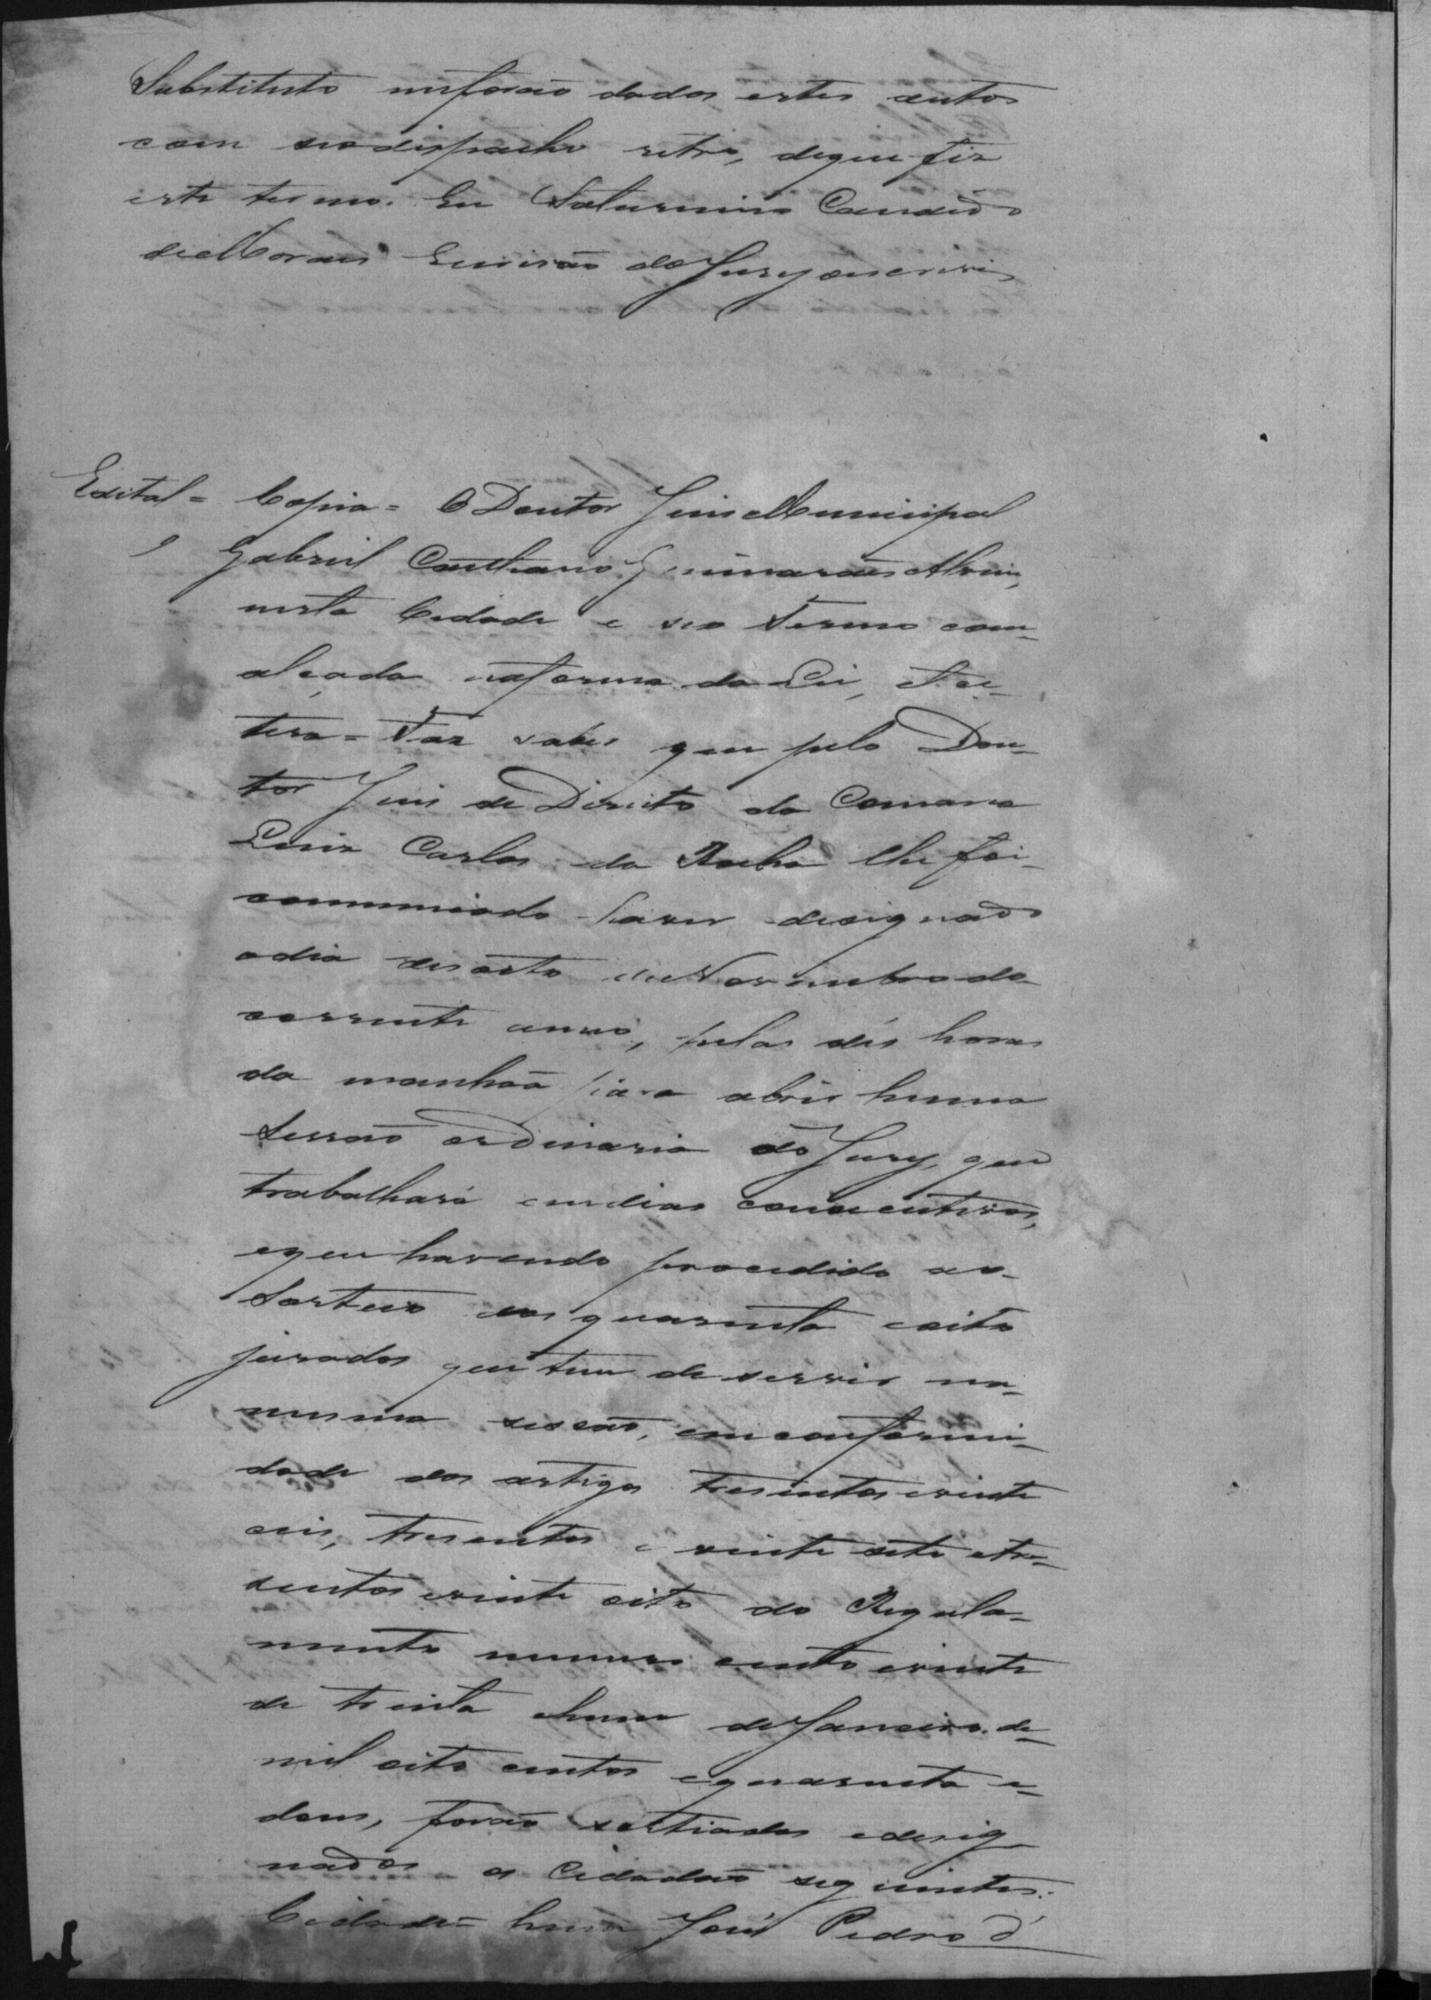 Substituto meforão dados estes autos
com seodispacho retro, deque fiz
este termo. Eu Saturnino Candido
deMoraes Escrivão doJuryoescrivi
Edital = Copia = O Doutor JuisMunicipal
Gabriel Caetano Guimarães Alvim,
nesta Cidade e seo Termo com
alçada naforma da Lei, etce-
tera = Faz saber que pelo Dou-
tor Juis de Direito da Comarca
Luiz Carlos da Rocha lhe foi
communicado haver designado
odia desoito deNovembro do
corrente anno, pelas dés horas
da manhaã para abrir huma
Sessão ordinaria do Jury, que
trabalhará emdias consecutivos,
eque havendo procedido ao
Sorteio dos quarenta eoito
jurados que tem de servir na
mesma sessão, em conformi-
dade dos artigos tresentos evinte
ceis, tresentos e vinte sete etre-
sentos evinte oito do Regula-
mento numero cento evinte
de trinta ehum deJaneiro de
mil oito centos equarenta e
dous, forão sortiados edesig
nados os Cidadãos seguintes:
Cidade = hum José Pedro d'